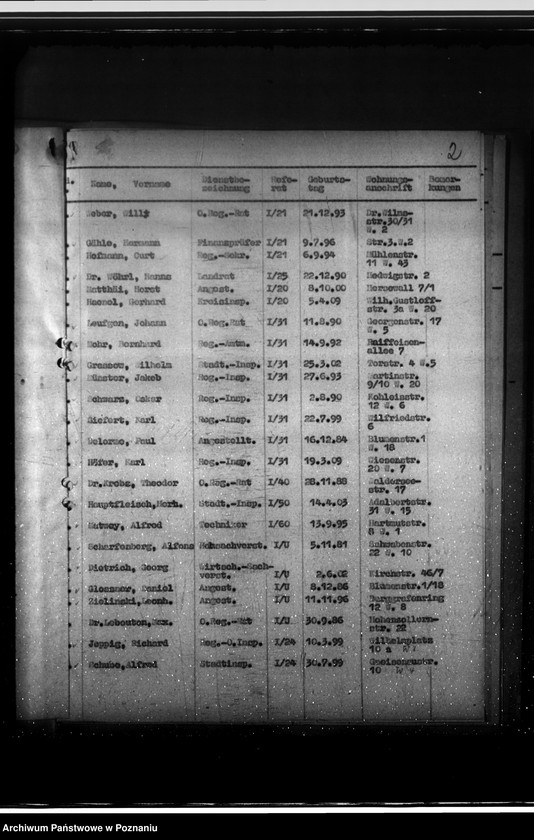 2
Name, Vorname Dienstbe- Refe- Geburts- Wohnungs- Bemer-
zeichnung rat tag anschrift kungen
Weber, Willy O.Reg.-Rat I/21 21.12.93 Dr.Wilms-
str.30/31
W. 2
Gähle, Hermann Finanzprüfer I/21 9.7.96 Str.3.W.2
Hofmann, Curt Reg.-Sekr. I/21 6.9.94 Mühlenstr.
11 W. 43
Dr. Wöhrl, Hanns Landrat I/25 22.12.90 Hedwigstr. 2
Matthäi, Horst Angest. I/20 8.10.00 7/1
Haesel, Gerhard Kreisinsp. I/20 5.4.09 Wilh.Gustloff-
str. 3a W. 20
Leufgen, Johann O.Reg.Rat I/31 11.8.90 Georgenstr. 17
W. 5
Bohr, Bernhard Reg.-Amtm. I/31 14.9.92 Raiffeisen-
allee 7
Grassow, Wilhelm Stadt.-Insp. I/31 25.3.02 Torstr. 4 W.5
Münster, Jakob Reg.-Insp. I/31 27.6.93 Martinstr.
9/10 W. 20
Schwarz, Oskar Reg.-Insp. I/31 2.8.90
12 W. 6
Giefert, Karl Reg.-Insp. I/31 22.7.99 Wilfriedstr.
6
Delorme, Paul Angestellt. I/31 16.12.84 Blumenstr.1
W. 18
Höfer, Karl Reg.-Insp. I/31 19.3.09 Wiesenstr.
20 W. 7
Dr.Krebs, Theodor O.Reg.-Rat I/40 28.11.88 Waldersee-
str. 17
Hauptfleisch,Herm. Stadt.-Insp. I/50 14.4.03 Adalbertstr.
31 W. 15
Alfred Techniker I/60 13.9.95 Hartmutstr.
8 W. 1
Scharfenberg, Alfons I/U 5.11.81 Schwabenstr.
22 W. 10
Dietrich, Georg Wirtsch.-Sach-
verst. I/U 2.6.02 Kirchstr. 46/7
Glessmer, Daniel Angest. I/U 8.12.86 Blumenstr.1/18
Zielinski,Leonh. Angest. I/U 11.11.96 Burggrafenring
12 W. 8
Dr.Lebouton,Max. O.Reg.-Rat I/U 30.9.86 Hohenzollern-
str. 22
Jeppig, Richard Reg.-O.Insp. I/24 10.3.99 Wilhelmplatz
10 a
Schube,Alfred Stadtinsp. I/24 30.7.99 Gneisenaustr.
10
Archiwum Państwowe w Poznaniu